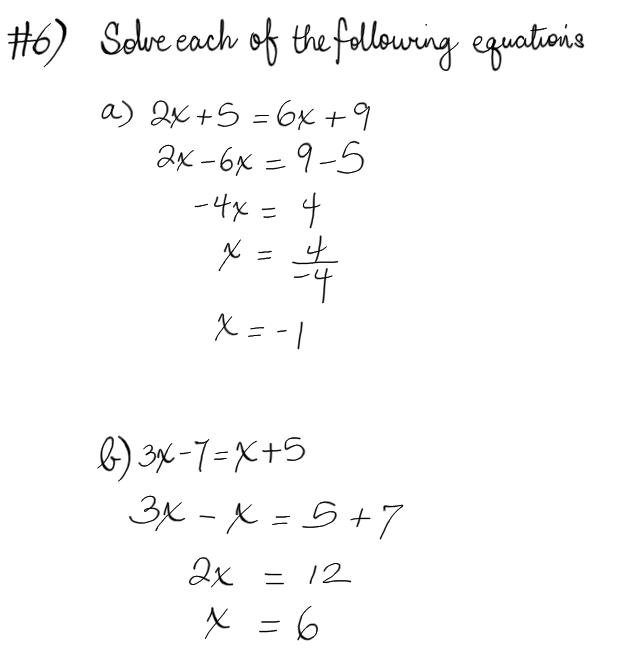 #6) Solve each of the following equations
a) 2x + 5 = 6x + 9
2x - 6x = 9 - 5
-4x = 4
x = 4/-4
x = -1
b) 3x - 7 = x + 5
3x - x = 5 + 7
2x = 12
x = 6